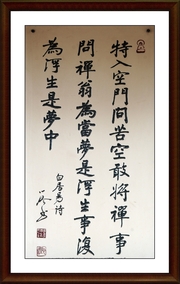 特入空門問苦空敢將禪事
問禪翁為當夢是浮生事復
為浮生是夢中
白居易詩